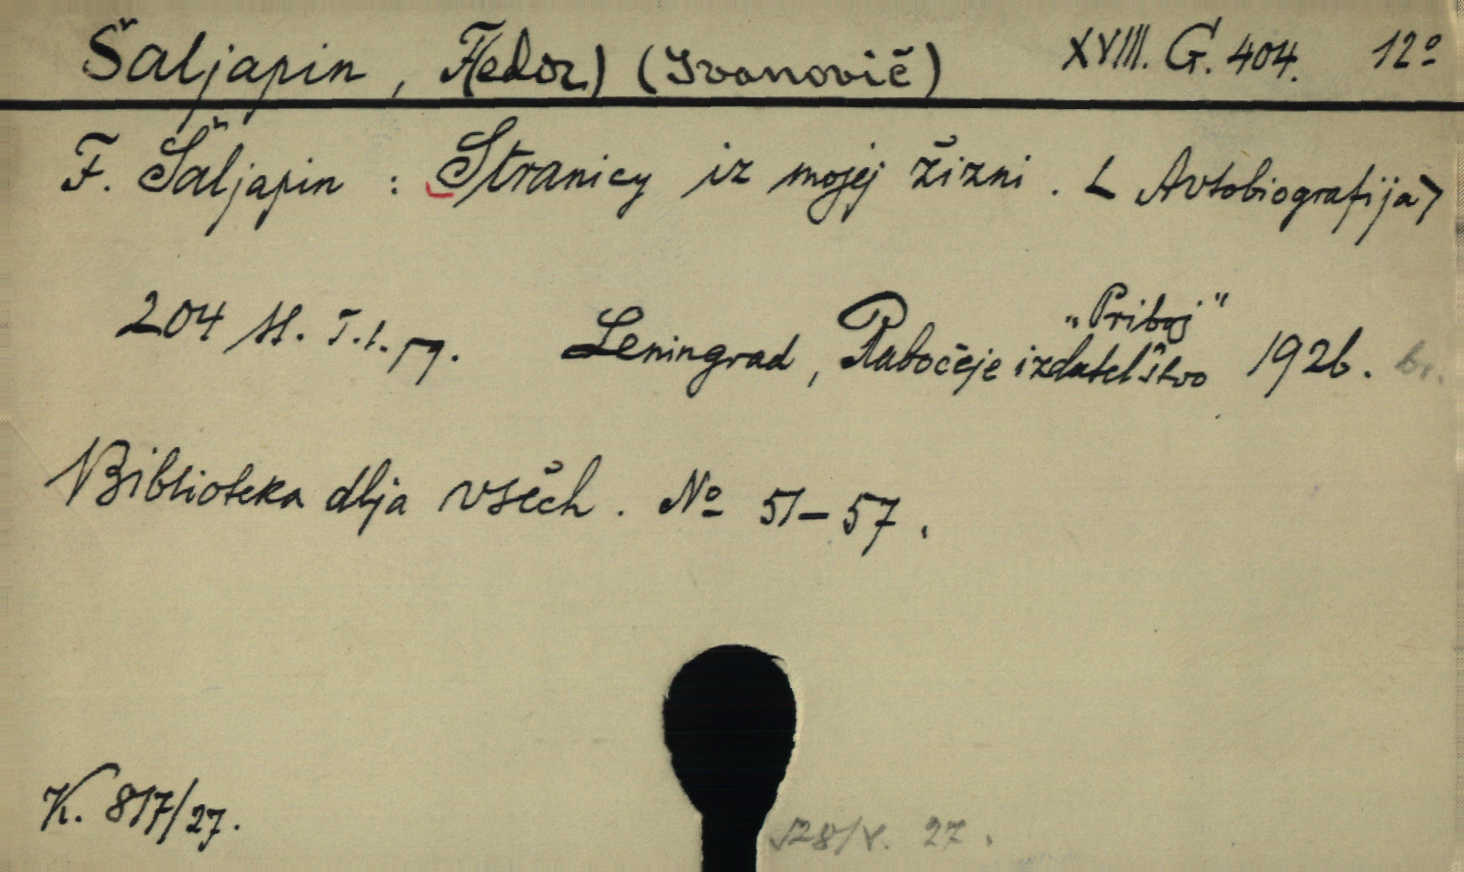 Šaljapin, F(edor) (Ivanovič) XVIII. G. 404. 12º
F. Šaljapin : Stranicy iz mojej žizni. < Avtobiografija>
204 Leningrad, Rabočeje izdatel'stvo „Priboj" 1926. br.
Biblioteka dlja vsěch. Nº 51–57.
K. 817/27.
27.